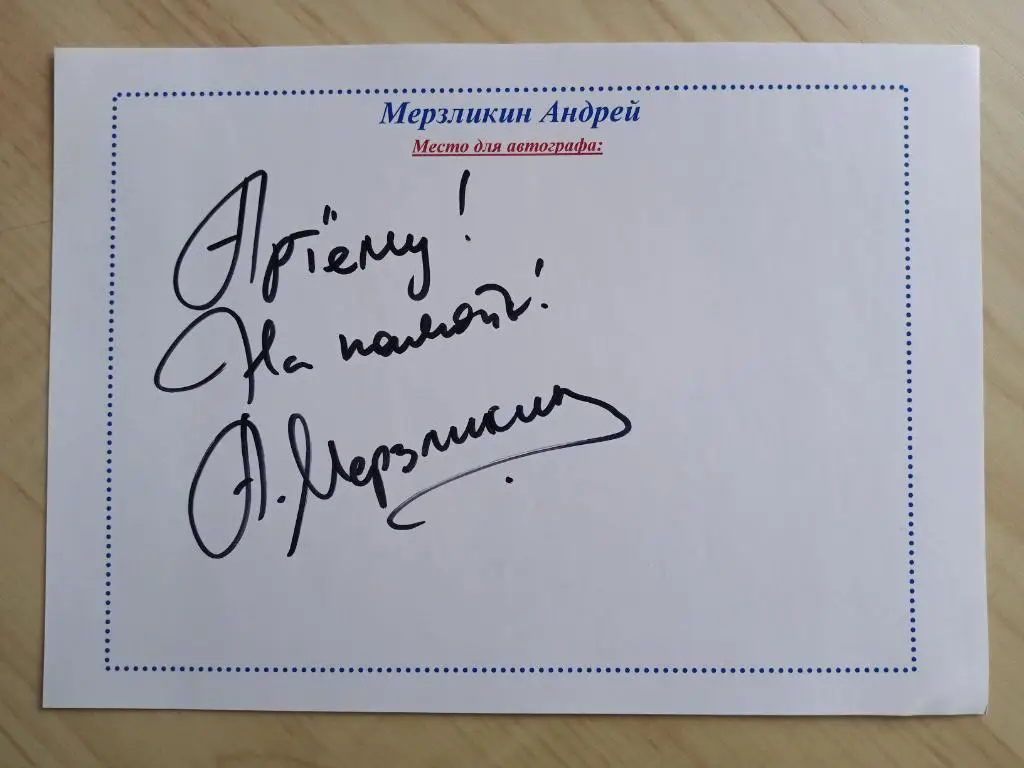 Мерзликин Андрей
Место для автографа:
Артёму!
На память!
А. Мерзликин